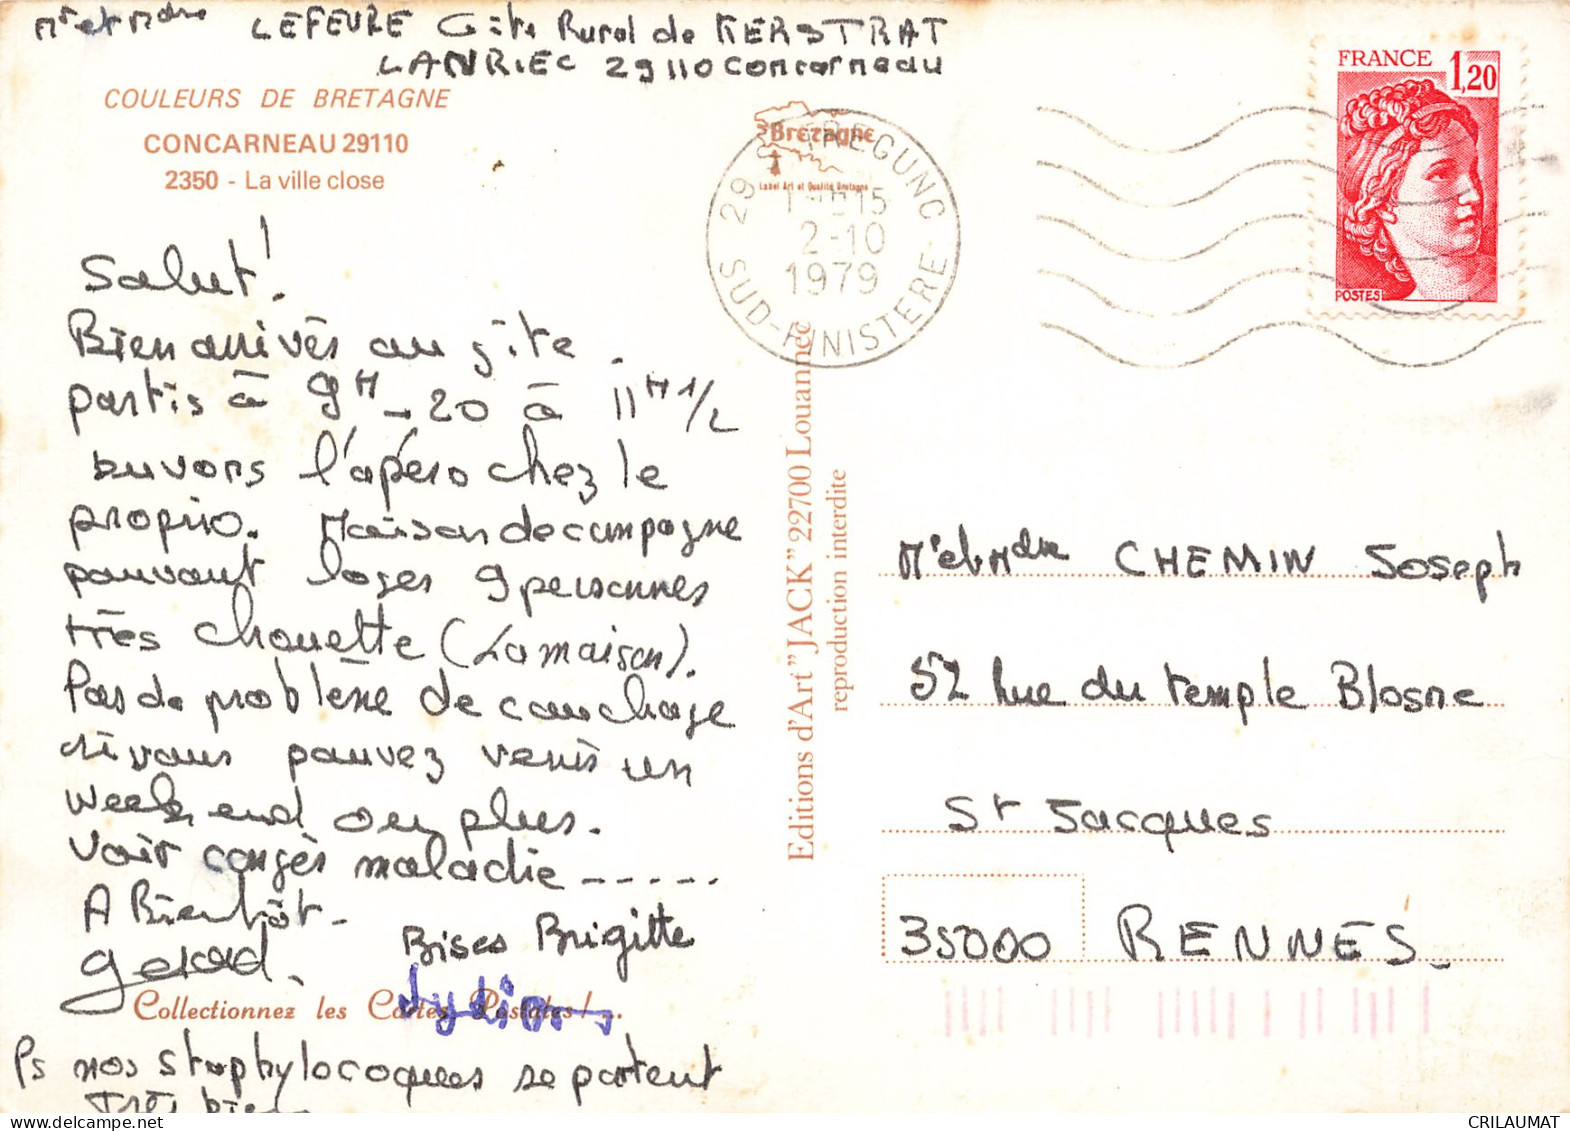 Mr et Mme LEFEUVRE Gite Rural de KERSTRAT
LANRIEC 29110 Concarneau
COULEURS DE BRETAGNE
CONCARNEAU 29110
2350 - La ville close
Salut!
Bien arrivés au gîte.
partis à 9H - 20 à 11H 1/2
buvons l'apéro chez le
proprio. Maison de campagne
pouvant loger 9 personnes
très chouette (La maison).
Pas de problème de couchage
si vous pouvez venir un
week end ou plus.
Voir congés maladie -----
A Bientôt -
Gerard.
Bises Brigitte
Lydia
Collectionnez les Cartes Postales!...
Ps nos staphylocoques se portent
Très bien
Bretagne
Label Art et Qualité Bretagne
29 S TREGUNC
15
2-10
1979
SUD-FINISTERE
Editions d'Art "JACK" 22700 Louannec
reproduction interdite
FRANCE 1,20
POSTES
Mr et Mme CHEMIN Joseph
52 Rue du temple Blosne
St Jacques
35000 RENNES.
CRILAUMAT